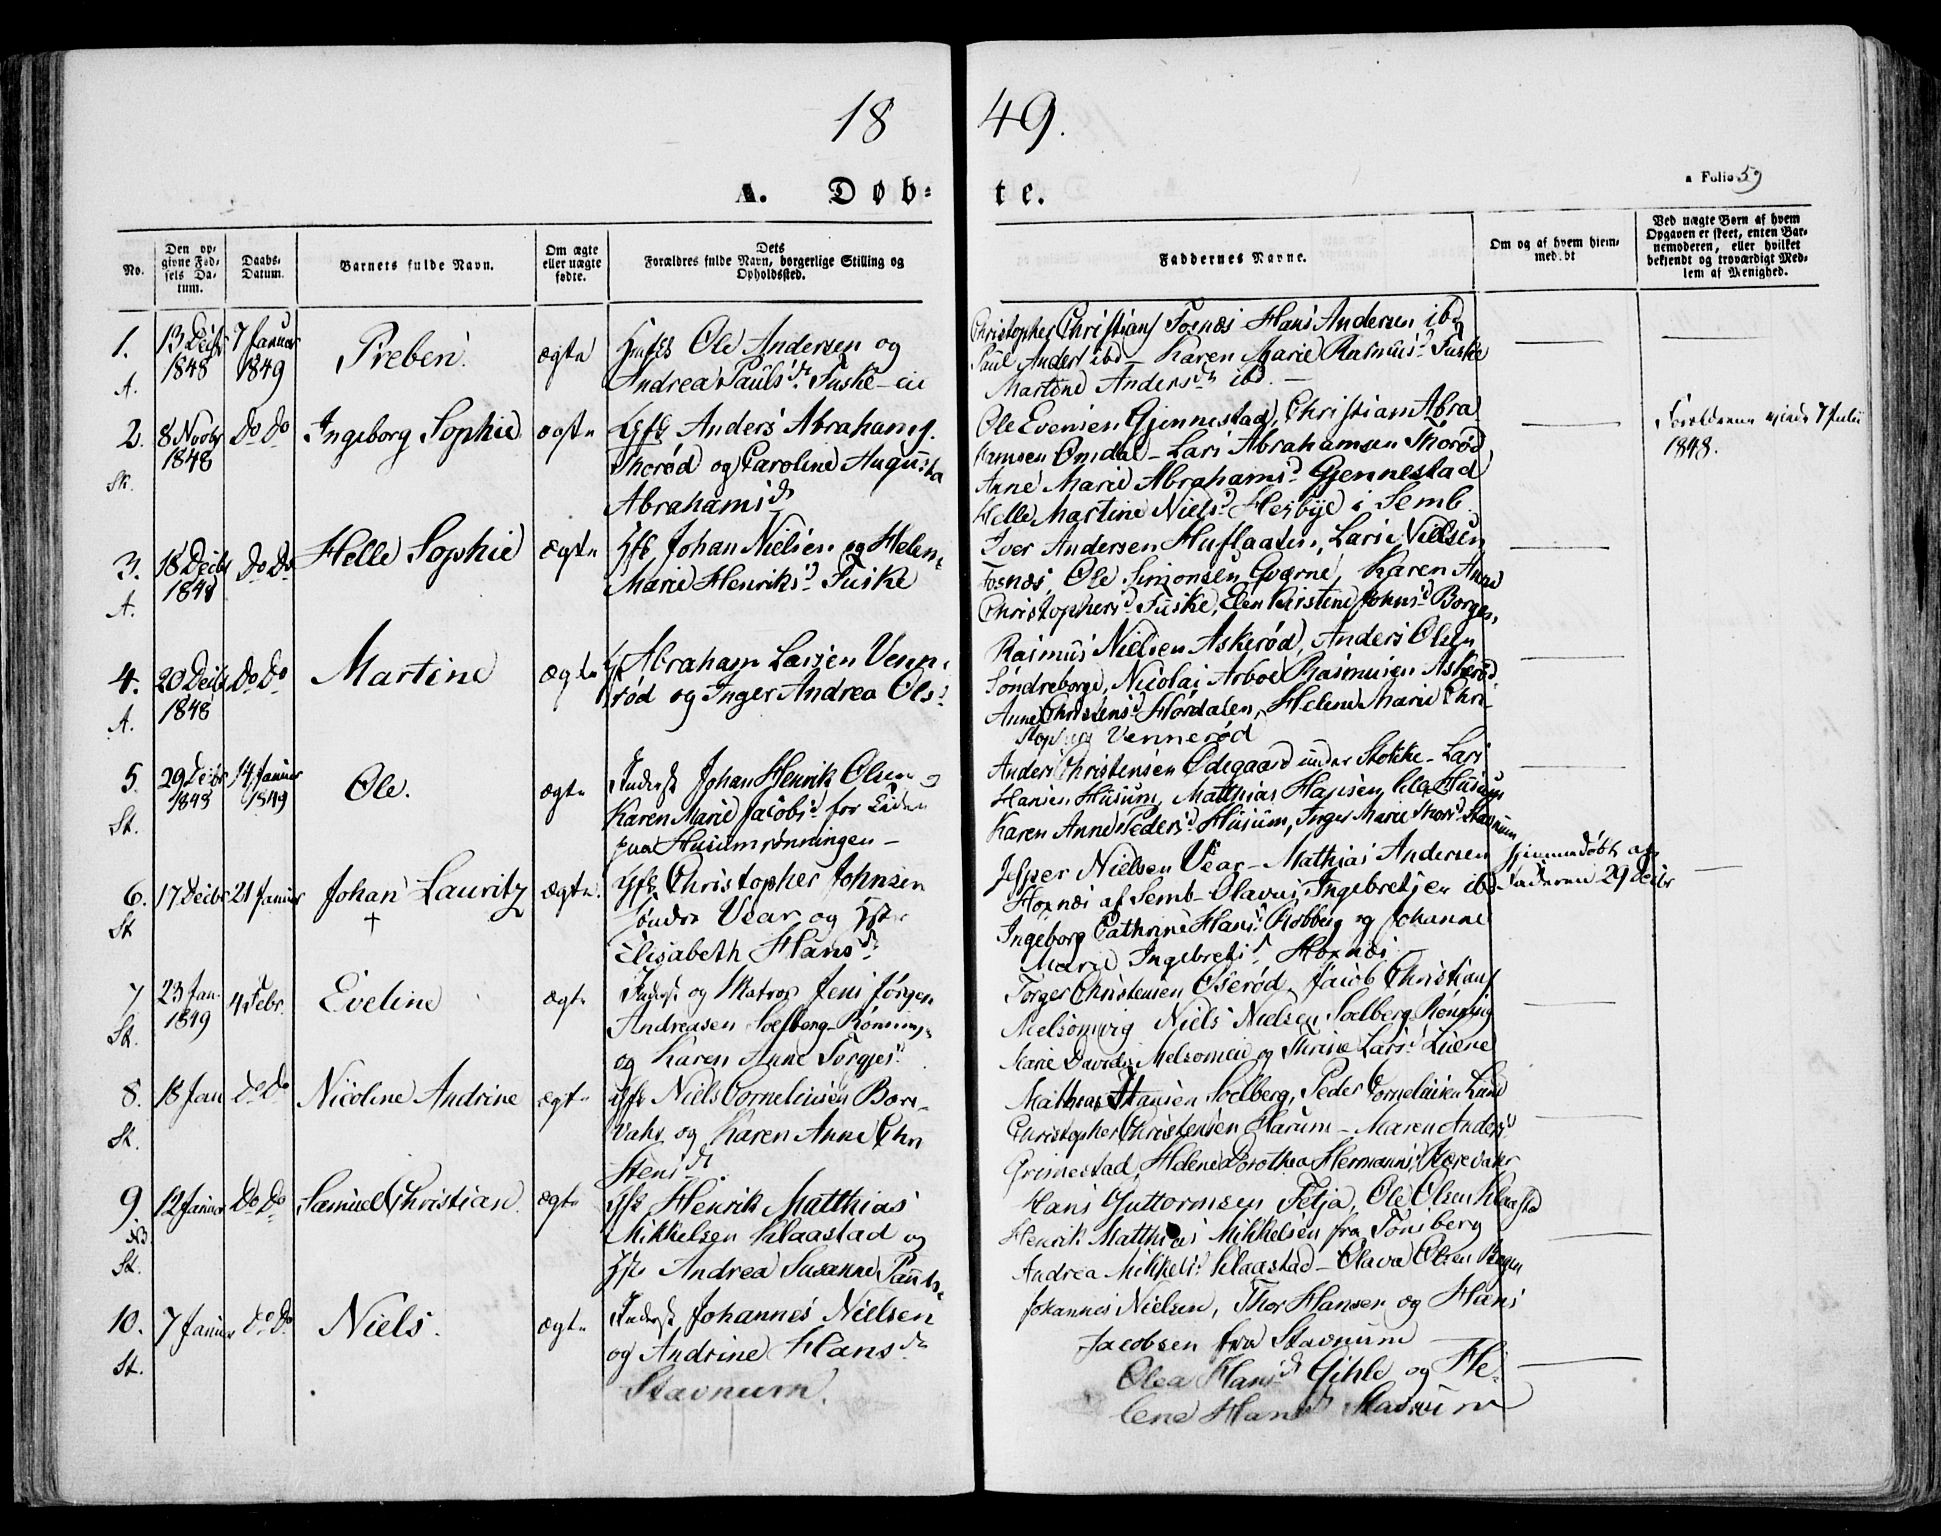 18 49.
A. Døb= te.
a Folio 59
No.
Den op-
givne Fød-
sels Da-
tum.
Daabs-
Datum.
Barnets fulde Navn.
Om ægte
eller uægte
fødte.
Dets
Forældres fulde Navn, borgerlige Stilling og
Opholdssted.
Faddernes Navne.
Om og af hvem hjem-
med.bt
Ved uægte Børn af hvem
Opgaven er skeet, enten Bar-
nemoderen, eller hvilket
bekjendt og troværdigt Med-
lem af Menighed.
1.
A.
13 Decbr
1848
7 Januar
1849
Preben.
ægte
Ole Andersen og
Andrea Pauls d. Fuske
Christopher Christians Fosnæs Hans Andersen ibd
Paul Anders ibd – Karen Marie Rasmus d. Fuske
Martine Anders d. ibd. –
2.
Sk.
8 Novbr
1848
Do Do
Ingeborg Sophie
ægte
Gfb Anders Abrahams.
Thorød og Caroline Augusta
Abrahams d.
Ole Evensen Gjennestad, Christian Abra
hamsen Omdal – Lars Abrahamsen Thorød
Anne Marie Abrahams d. Gjennestad
Helle Martine Niels d. Hesbye i Semb
Forældrene viede 7 Julii
1848.
3.
A.
18 Decbr
1848
Do Do
Helle Sophie
ægte
Gfb Johan Nielsen og Helen
Marie Henriks d. Fuske
Iver Andersen Huflaaten, Lars Nielsen
Fosnæs, Ole Simonsen Qværne, Karen Anne
Christophers d. Fuske, Elen Kirstine Johns d. Borge.
4.
A.
20 Decbr
1848
Do Do
Martine
ægte
Abraham Larsen Venne
rød og Inger Andrea Ols d.
Rasmus Nielsen Askerød, Anders Olsen
Søndreborge, Nicolai Arboe Rasmusen Askerød
Anne Christens d. Hørdalen, Helene Marie Chri
Vennerød
5.
St.
29 Decbr
1848
14 Januar
1849
Ole.
ægte
Inderst Johan Henrik Olsen og
Karen Marie Jacobs d. for Tiden
paa Husumrønningen –
Anders Christensen Ødegaard under Stokke – Lars
Hansen Husum, Matthias Hansen Husum
Karen Anne Peders d. Husum, Inger Marie Thors d. Stavnum
6.
St
17 Decbr
21 Januar
Johan Lauritz
†
ægte.
Gfb. Christopher Johnsen
Søndre Vear og Hst.
Elisabeth Hans d.
Jesper Nielsen Vear – Mathias Andersen
Hoxnæs af Semb – Olavus Ingebretsen ibd
Ingeborg Cathrine Hans d. Robberg og Johanne
Marie Ingebrets d. Hoxnæs
Hjemmedøbt af
Faderen 29 Decbr
7
St.
23 Jan.
1849
4 Febr.
Eveline
ægte
Inderst og Matros Jens Jørgen
Andreasen Solberg-Rønning
og Karen Anne Torgjes d.
Torger Christensen Oserød, Jacob Christians
Melsomvig Niels Nielsen Solberg Rønning
Marie Davids d. Melsomvig og Lars d. Liene
8.
St.
18 Jan
Do Do
Nicoline Andrine
ægte
Gfb Niels Cornelius en Bore-
vaks og Karen Anne Chri
stens d.
Mathias Hansen Solberg, Peder Corneliusen Lund
Christopher Christensen Harum – Maren Anders d.
Grimestad, Helene Dorothea Hermanns d. Borevaks
9
NB.
St.
12 Januar
Do Do
Samuel Christian
ægte
Gfb Henrik Matthias
Mikkelsen Klaastad og
Hst. Andrea Susanne Pauls d.
Hans Guttormsen Fetja, Ole Olsen Klaastad
Henrik Matthias Mikkelsen fra Tønsberg
Andrea Mikkels d. Klaastad – Olava Olsen Bogen
10.
St.
7 Januar
do Do
Niels.
ægte
Inderst Johannes Nielsen
og Andrine Hans d.
Stavnum.
Johannes Nielsen, Thor Hansen og Hans
Jacobsen fra Stavnum
Olea Hans d. Gihle og He-
lene Hans d. Stavnum